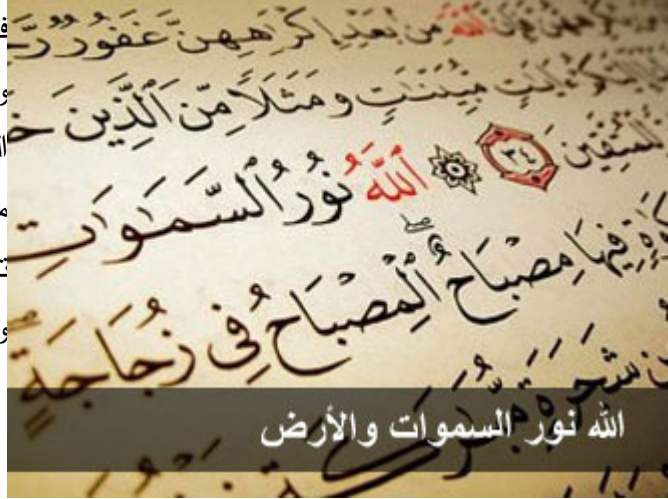 فَإِنَّ ٱللَّهَ مِنۢ بَعۡدِ إِكۡرَٰهِهِنَّ غَفُورٞ رَّحِ
ءَايَٰتٖ مُّبَيِّنَٰتٖ وَمَثَلٗا مِّنَ ٱلَّذِينَ خَ
لِّلۡمُتَّقِينَ ٣٤ ۞ ٱللَّهُ نُورُ ٱلسَّمَٰوَٰتِ
فِيهَا مِصۡبَاحٌۖ ٱلۡمِصۡبَاحُ فِي زُجَاجَةٍۖ
شَجَرَةٖ مُّبَٰرَكَةٖ
الله نور السموات والأرض